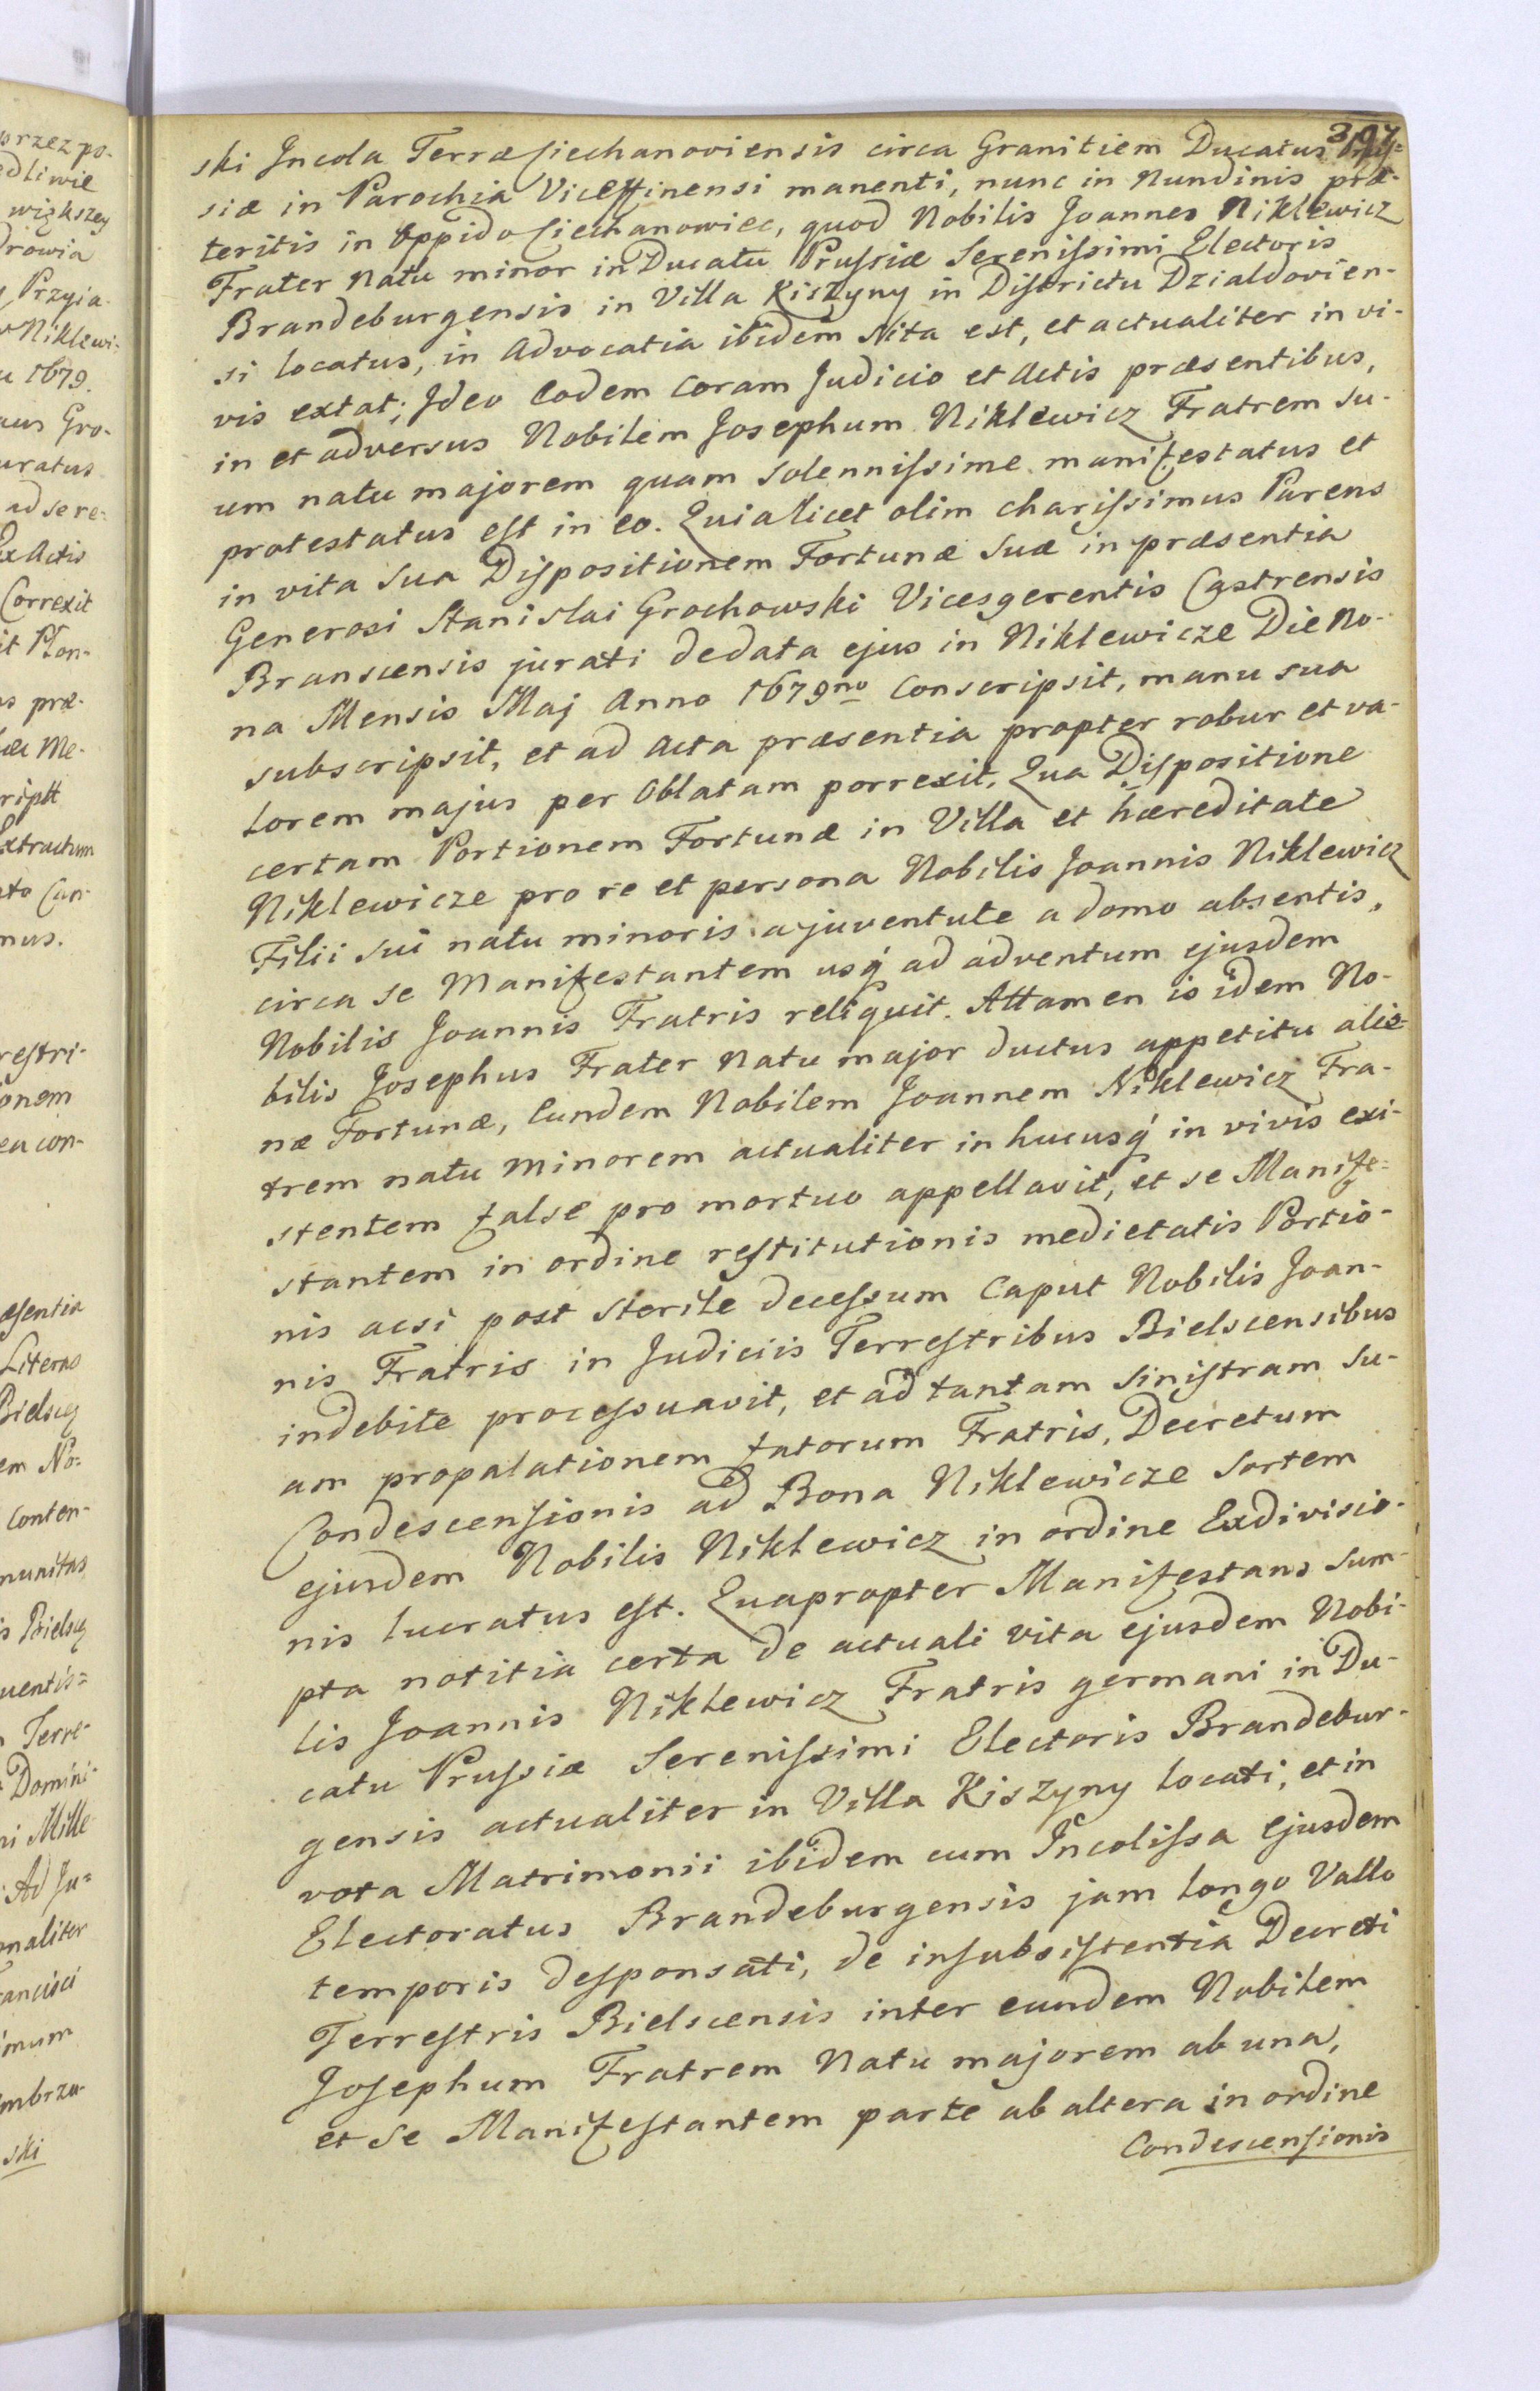 397
ski Incola Terræ Ciechanoviensis circa Granitiem Ducatus Prus=
siæ in Parochia Viceffinensi manenti, nunc in Nundinis præ-
teritis in Oppido Ciechanowiec, quod Nobilis Joannes Niklewicz
Frater Natu minor in Ducatu Prussiæ Serenissimi Electoris
Brandeburgensis in Villa Kiszyny in Districtu Dzialdovien-
si locatus, in Advocatia ibidem Nita est, et actualiter in vi-
vis extat; Ideo Eodem Coram Judicio et Actis præsentibus,
in et adversus Nobilem Josephum Niklewicz Fratrem su-
um natu majorem quam solennissime manifestatus et
protestatus est in eo. Quia licet olim charissimus Parens
in vita sua Dispositionem Fortunæ suæ in præsentia
Generosi Stanislai Grochowski Vicesgerentis Castrensis
Branscensis jurati dedata ejus in Niklewicze Die No-
na Mensis Maj Anno 1679no Conscripsit, manu sua
subscripsit, et ad Acta præsentia propter robur et va-
lorem majus per Oblatam porrexit, Qua Dispositione
certam Portionem Fortunæ in Villa et hæreditate
Niklewicze pro re et persona Nobilis Joannis Niklewicz
Filii sui natu minoris a juventute a domo absentis,
circa se Manifestantem usq́ ad adventum ejusdem
Nobilis Joannis Fratris reliquit. Attamen is idem No-
bilis Josephus Frater Natu major ductus appetitu alie-
næ Fortunæ, Eundem Nobilem Joannem Niklewicz Fra-
trem natu minorem actualiter in hucusq́ in vivis exi-
stentem false pro mortuo appellavit, et se Manife=
stantem in ordine restitutionis medietatis Portio-
nis acsi post sterile decessum Caput Nobilis Joan-
nis Fratris in Judiciis Terrestribus Bielscensibus
indebite processuavit, et ad tantam sinistram su-
am propalationem fatorum Fratris, Decretum
Condescensionis ad Bona Niklewicze Sortem
ejusdem Nobilis Niklewicz in ordine Exdivisio-
nis lucratus est. Quapropter Manifestans sum-
pta notitia certa de actuali vita ejusdem Nobi-
lis Joannis Niklewicz Fratris germani in Du-
catu Prussiæ Serenissimi Electoris Brandebur-
gensis actualiter in Villa Kiszyny locati, et in
vota Matrimonii ibidem cum Incolissa Ejusdem
Electoratus Brandeburgensis jam longo Vallo
temporis desponsati, de insubsistentia Decreti
Terrestris Bielscensis inter eundem Nobilem
Josephum Fratrem Natu majorem ab una,
et se Manifestantem parte ab altera in ordine
Condescensionis